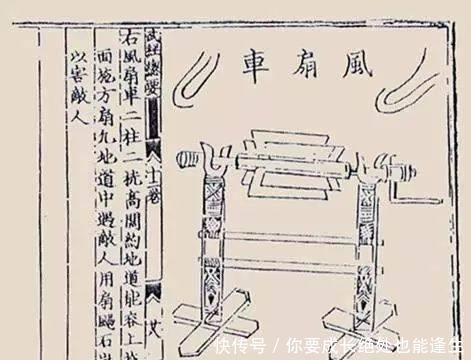 風扇車
武經總要 十二卷
右風扇車二柱二桄高闊約地道能容上
面施方扇凡地道中遇敵人用扇颺石
以害敵人
快传号 / 你要成长绝处也能逢生